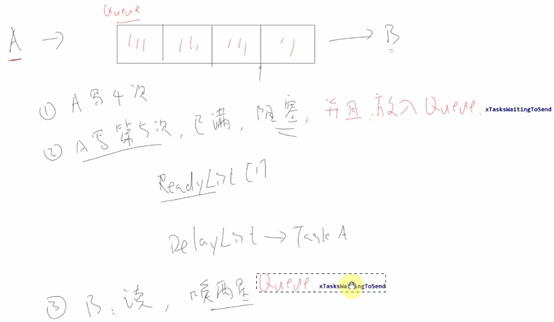 Queue
A → → B
① A写4次
② A写第5次, 已满, 阻塞, 并且放入Queue. xTasksWaitingToSend
ReadyList [1]
DelayList → Task A
③ B: 读, 唤 Queue xTasksWaitingToSend